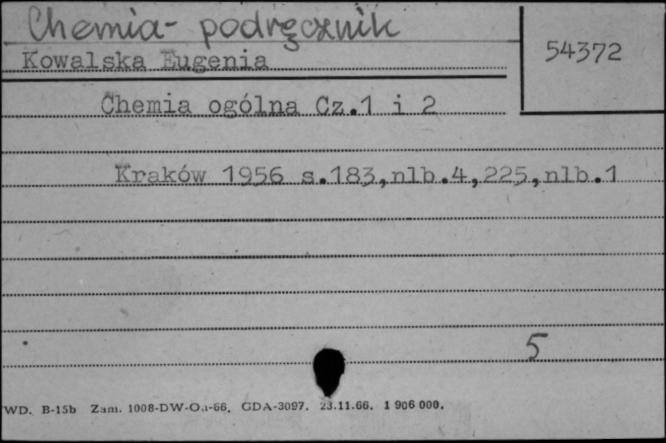 Chemia - podręcznik
54372
Kowalska Eugenia
Chemia ogólna Cz.1 i 2
Kraków 1956 s.183,nlb.4,225,nlb.1
5
WD. B-15b Zam. 1008-DW-Oa-66. GDA-3097. 23.11.66. 1 906 000.